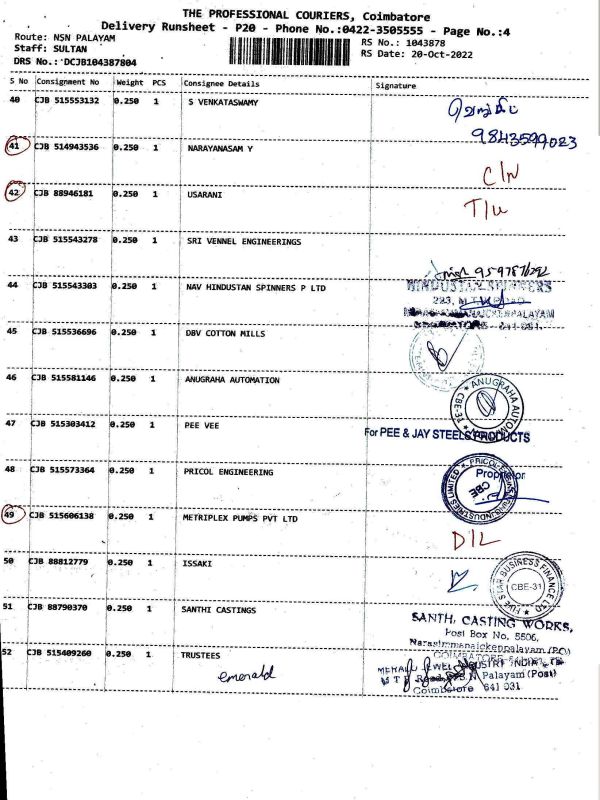 THE PROFESSIONAL COURIERS, Coimbatore
Delivery Runsheet - P20 - Phone No.:0422-3505555 - Page No.:4
Route: NSN PALAYAM
RS No.: 1043878
Staff: SULTAN
RS Date: 20-Oct-2022
DRS No.: DCJB104387804
S No Consignment No Weight PCS Consignee Details Signature
40 CJB 515553132 0.250 1 S VENKATASWAMY
9843599023
41 CJB 514943536 0.250 1 NARAYANASAM Y C/N
42 CJB 88946181 0.250 1 USARANI
43 CJB 515543278 0.250 1 SRI VENNEL ENGINEERINGS
44 CJB 515543303 0.250 1 NAV HINDUSTAN SPINNERS P LTD HINDUSTAN SPINNERS
45 CJB 515536696 0.250 1 DBV COTTON MILLS
46 CJB 515581146 0.250 1 ANUGRAHA AUTOMATION
47 CJB 515303412 0.250 1 PEE VEE
For PEE & JAY STEELS PRODUCTS
48 CJB 515573364 0.250 1 PRICOL ENGINEERING
Proprietor
49 CJB 515606138 0.250 1 METRIPLEX PUMPS PVT LTD
D/L
50 CJB 88812779 0.250 1 ISSAKI FIVE STAR BUSINESS FINANCE CBE-31
51 CJB 88790370 0.250 1 SANTHI CASTINGS
SANTH, CASTING WORKS,
Post Box No, 5506,
Narasimmanaickenpalayam (PO)
52 CJB 515409260 0.250 1 TRUSTEES
emerald
Palayam (Post)
Coimbatore 641 031